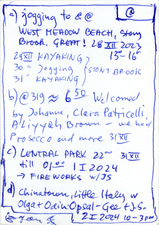 a) jogging to & @
WEST MEADOW BEACH, Stony
Brook. GREAT! 28 XII 2023
15-16
29 XII KAYAKING
30 " Jogging STONY BROOK
31 " KAYAKING
b) @ 319 ≈ 6 50 Welcomed
by Johanna, Clara Patricelli,
Aliyyah Brown - we had
Prosecco and more 31 XII
c) CENTRAL PARK 22
31 XII
till 01 1 I 2024
→ FIREWORKS w/JS
d) Chinatown, Little Italy w
Olga + Odin Opsal - Gee + JS.
2 I 2024 10-3 PM